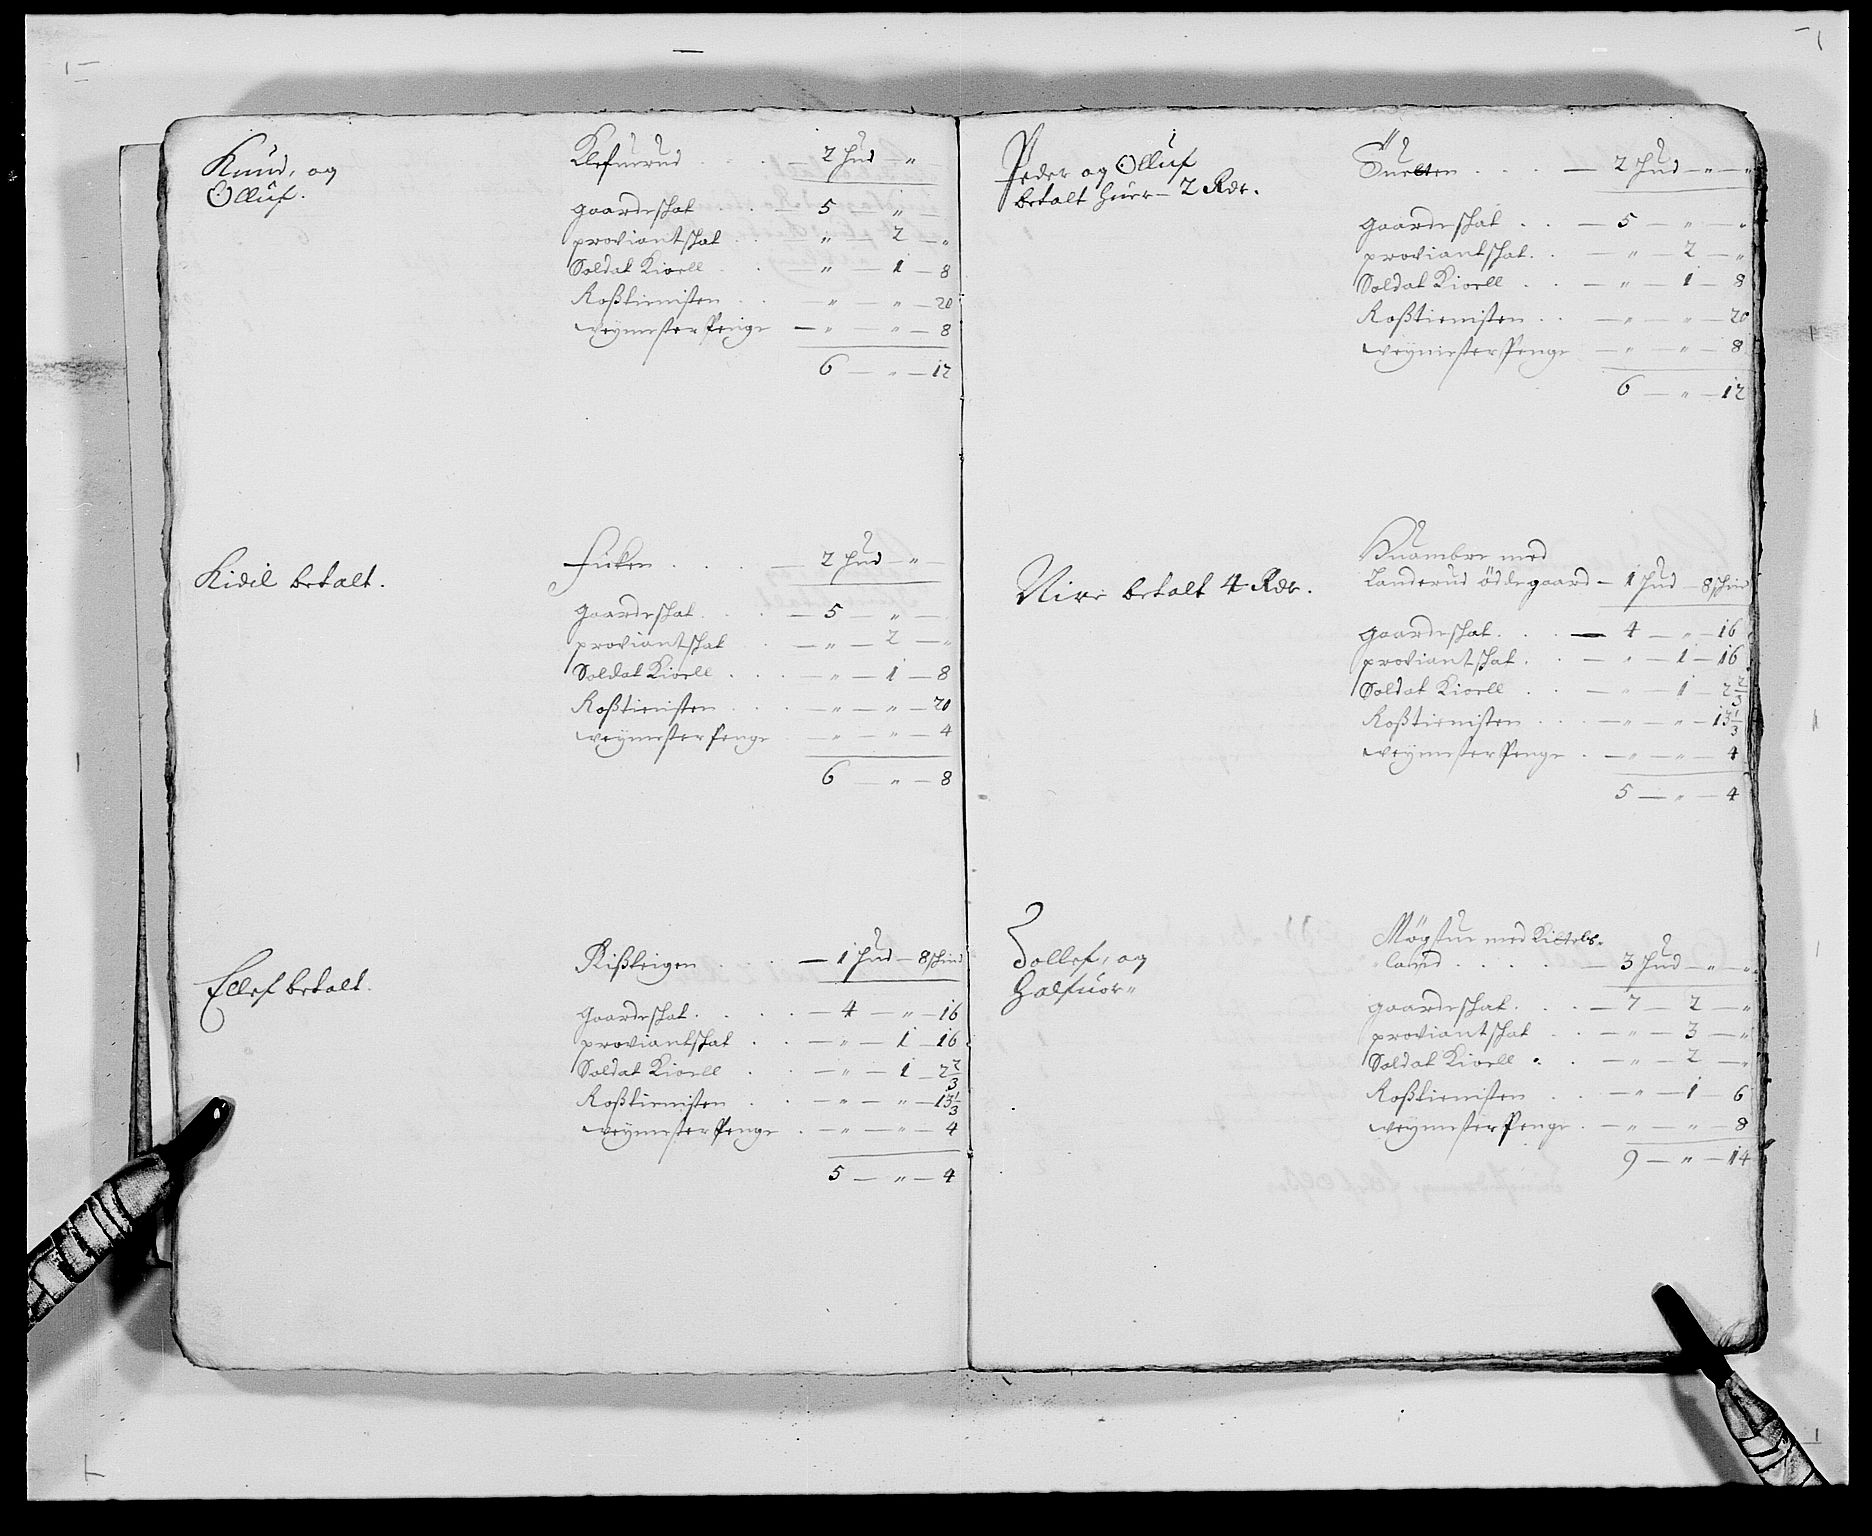 Knud, og
Olluf.
Klefuerud . . . — 2 hud — "
gaardeskat . . . 5 — "
proviantskat . . — " — 2 — "
Soldat Kioell . . — " — 1 — 8
Roßtienisten . . — " — " — 20
weymester Penge — " — " — 8
6 — " — 12
Kidil betalt.
Ficken . . . . — 2 hud — "
gaardeskat . . . — 5 — "
proviantskat . . — " — 2 — "
Soldat Kioell . . . — " — 1 — 8
Roßtienisten . . . — " — " — 20
weymester penge . — " — " — 4
6 — " — 8
Ellef betalt.
Rißteigen . . . — 1 hud — 8 skind
gaardeskat . . . . — 4 — " — 16
proviantskat . . — " — 1 — 16
Soldat Kioell . . — " — 1 — 2 2/3
Roßtienisten . . — " — " — 13 1/3
weymester Penge . — " — " — 4
5 — " — 4
Peder og Olluf
betalt huer — 2 Rdr.
Suelten . . . . — 2 hud — " — "
gaardeskat . . — 5 — " — "
proviantskat . . — " — 2 — "
Soldat Kioell . . — " — 1 — 8
Roßtienisten . . — " — " — 20
weymester Penge — " — " — 8
6 — " — 12
Niri betalt 4 Rdr.
Huambre med
Landerud öddegaard — 1 hud — 8 skind
gaardeskat . . . — 4 — " — 16
proviantskat . . — " — 1 — 16
Soldat Kioell . . — " — 1 — 2 2/3
Roßtienisten . . . — " — " — 13 1/3
weymester Penge . — " — " — 4
5 — " — 4
Tollef, og
Halfuor "
Mögstue med Kittels-
land . . . . . — 3 hud — " — "
gaardeskat . . . — 7 — 2 — "
proviantskat . . — " — 3 — "
Soldat Kioell . . — " — 2 — "
Roßtienisten . . — " — 1 — 6
weymester Penge . — " — " — 8
9 — " — 14